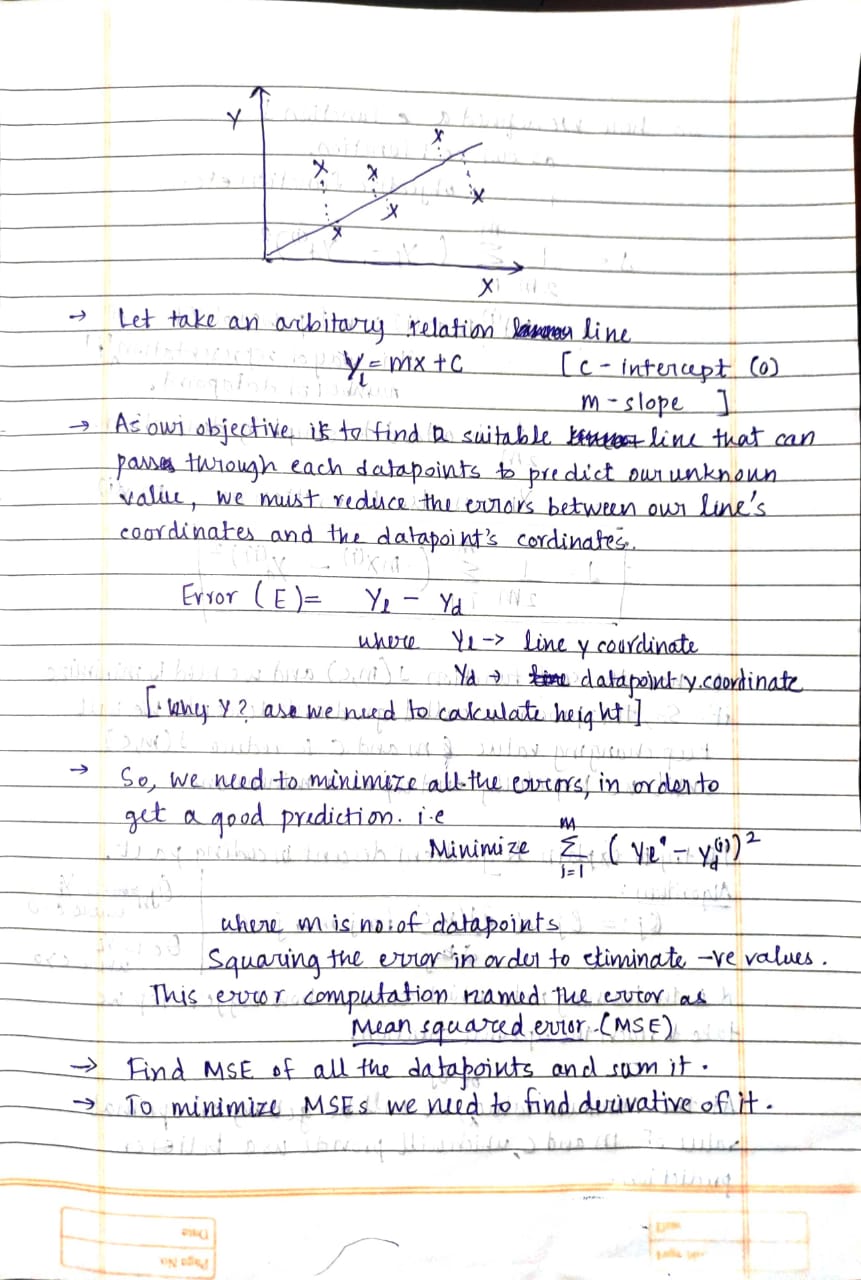 Y
X
→ Let take an arbitary relation line
Yₗ = mx + C [C - intercept (0)
m - slope ]
→ As our objective is to find a suitable line that can
passes through each datapoints to predict our unknown
value, we must reduce the errors between our line's
coordinates and the datapoint's cordinates.
Error (E) = Yₗ - Yd
where Yₗ -> line y coordinate
Yd → datapoint y.coordinate
[: why Y? as we need to calculate height]
→ So, we need to minimize all the errors, in order to
get a good prediction. i.e
M
Minimize Σ ( Yₗ⁽ⁱ⁾ - Yd⁽ⁱ⁾)²
i=1
where m is no: of datapoints
Squaring the error in order to eliminate -ve values.
This error computation named the error as
Mean squared error (MSE)
→ Find MSE of all the datapoints and sum it.
→ To minimize MSEs we need to find derivative of it.
Date
Page No